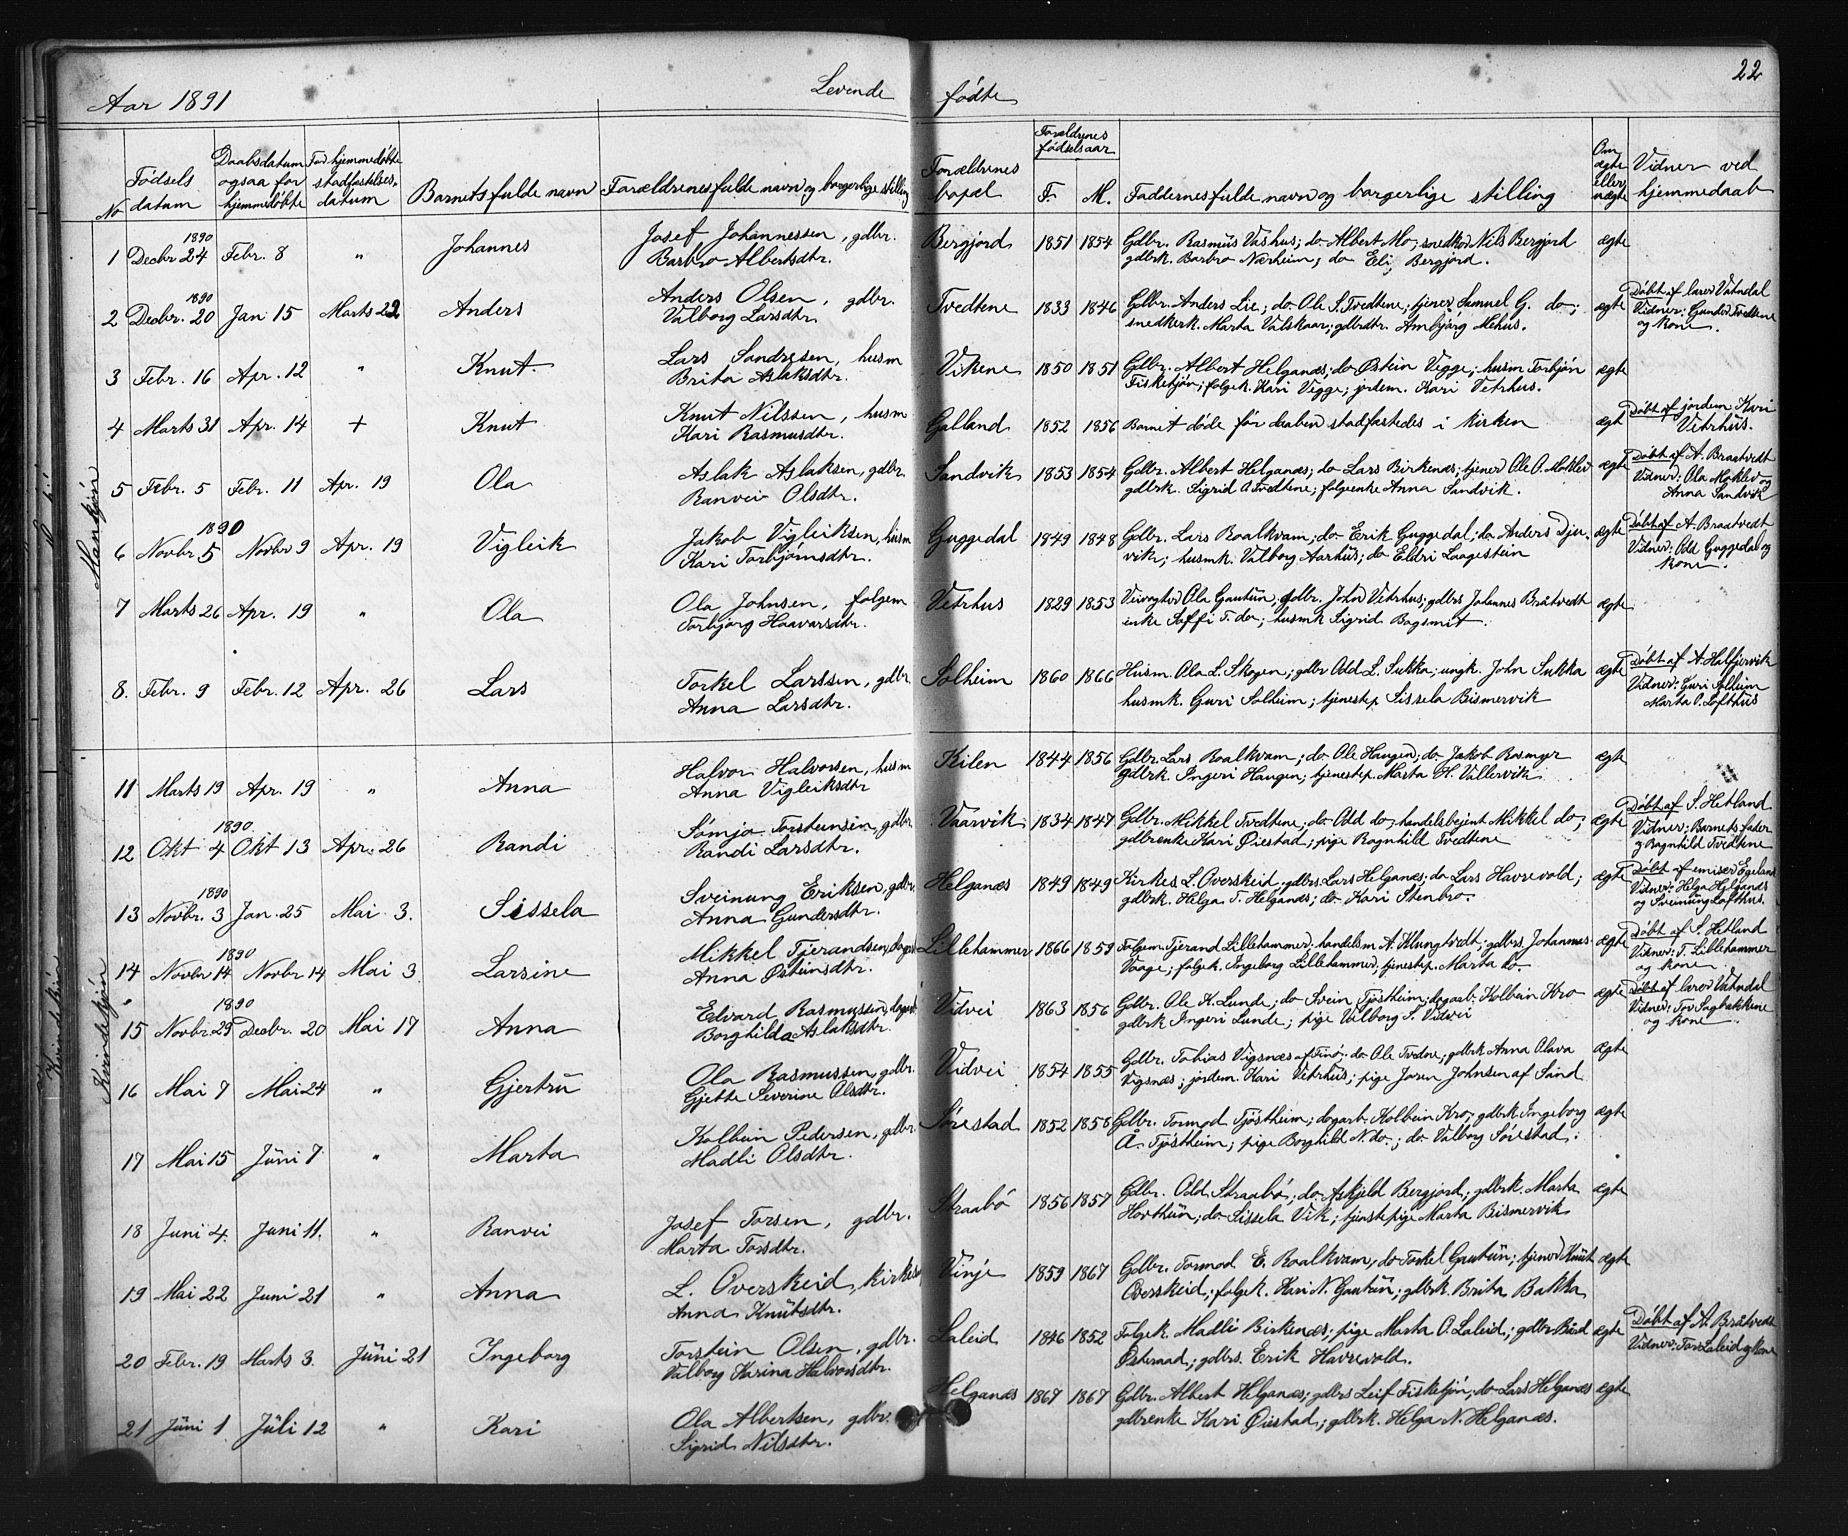 22
Aar 1891 Levende fødte
No Fødsels datum Daabsdatum ogsaa for hjemmedøbte For hjemmedøbte stadfæstelses-datum Barnets fulde navn Forældrenes fulde navn og borgerlige stilling Forældrenes bopæl Forældrenes fødselsaar F. M. Faddernes fulde navn og borgerlige stilling Om ægte eller uægte Vidner ved hjemmedaab
Mandkjøn
1 1890 Decbr 24 Febr. 8 " Johannes Josef Johannessen, gdbr. Bergjord 1851 1854 Gdbr. Rasmus Vashus; do Albert Mo; snedker Nils Bergjord ægte
Barbro Albertsdtr. gdbrk. Barbro Nærheim; do Eli Bergjord.
2 1890 Decbr. 20 Jan 15 Marts 22 Anders Anders Olsen, gdbr. Tvedtene 1833 1846 Gdbr. Anders Lie; do Ole S. Tvedtene; tjener Samuel G. do; ægte Døbt af lærer Vatndal
Valborg Larsdtr. snedkerk. Marta Valskaar; gdbrdtr. Ambjørg Mehus. Vidner: Gunder Tvedtene og kone.
3 Febr. 16 Apr. 12 " Knut Lars Sandresen, husm Vikene 1850 1851 Gdbr. Albert Helganæs; do Østein Vegge; husm Torbjøn ægte
Brita Aslaksdtr. Fisketjøn; folgek. Kari Vegge; jordem. Kari Vetrhus.
4 Marts 31 Apr. 14 + Knut Knut Nilssen, husm Galland 1852 1856 Barnet døde før daaben stadfæstedes i kirken ægt Døbt af jordem Kari
Kari Rasmusdtr. Vetrhus.
5 Febr. 5 Febr. 11 Apr. 19 Ola Aslak Aslaksen, gdbr. Sandvik 1853 1854 Gdbr. Albert Helganæs; do Lars Birkenæs; tjener Ole O. Moklev ægte Døbt af A. Braatvedt
Ranvei Olsdtr. gdbrk. Sigrid A Tvedtene; folgeenke Anna Sandvik. Vidner: Ola Moklev og Anna Sandvik
6 1890 Novbr. 5 Novbr 9 Apr. 19 Vigleik Jakob Vigleiksen, husm Guggedal 1849 1848 Gdbr. Lars Roalkvam; do Erik Guggedal; do Anders Djuvik; ægte Døbt af A. Braatvedt
Kari Torbjørnsdtr. husmk. Valborg Aarhus; do Eldri Laagestein Vidner: Odd Guggedal og kone.
7 Marts 26 Apr. 19 " Ola Ola Johnsen, folgem Vetrhus 1829 1853 Veivogter Ola Gautun; gdbr. John Vetrhus; gdbrs Johannes Bråtvedt ægte
Torbjørg Haavarsdtr. enke Soffi T. do; husmk Sigrid Bogsmit.
8. Febr. 9 Febr. 12 Apr. 26 Lars Torkel Larssen, gdbr Solheim 1860 1866 Husm. Ola L. Skogen; gdbr Odd L. Sukka; ungk. John Sukka ægte Døbt af A. Halfjervik
Anna Larsdtr. husmk. Guri Solheim; tjenestep Sissela Bismervik Vidner: Guri Solheim Marta O. Lofthus
Kvindekjøn
11 Marts 19 Apr. 19 " Anna Halvor Halvorsen, husm Kilen 1844 1856 Gdbr. Lars Roalkvam; do Ole Haugen; do Jakob Rosmyr ægte
Anna Vigleiksdtr gdbrk. Ingeri Haugen; tjenestep. Marta H. Villervik
12 1890 Okt 4 Okt 13 Apr. 26 Randi Sømja Torsteinsen, gdbr Vaarvik 1834 1847 Gdbr. Mikkel Tvedtene; do Odd do; handelsbetjent Mikkel do; ægte Døbt af S. Hetland
Randi Larsdtr. gdbrenke Kari Øiestad; pige Ragnhild Tvedtene Vidner: Barnets fader og Ragnhild Tvedtene
13 1890 Novbr. 3 Jan. 25 Mai 3. Sissela Sveinung Eriksen, gdbr. Helganæs 1849 1849 Kirkes. L. Overskeid; gdbrs. Lars Helganæs; do Lars Havrevold; ægte Døbt af emiser Egeland
Anna Gundersdtr. gdbrk. Helga T. Helganæs; do Kari Stenbro. Vidner: Helga Helganæs og Sveinung Lofthus.
14 1890 Novbr. 14 Novbr 14 Mai 3 Larsine Mikkel Tjerandsen, Lillehammer 1866 1859 Folgem Tjerand Lillehammer; handelsm A. Klungtvedt; gdbrs. Johannes ægte Døbt af S. Hetland
Anna Østeinsdtr. Vaage; folgek. Ingeborg Lillehammer; tjenestep. Marta do. Vidner: T. Lillehammer og kone
15 1890 Novbr. 29 Decbr. 20 Mai 17 Anna Edvard Rasmussen, Vidvei 1863 1856 Gdbr. Ole K. Lunde; do Svein Tjøstheim; dagarb. Kolbein Kro ægte Døbt af lærer Vatndal
Borghilda Aslaksdtr gdbrk Ingeri Lunde; pige Valborg S. Vidvei Vidner: Tor Sagbakkene og kone
16 Mai 7 Mai 24 " Gjertru Ola Rasmussen, gdbr. Vidvei 1854 1855 Gdbr. Tobias Vigsnæs af Finø; do Ole Tvedne; gdbrk Anna Olava ægte
Gjette Severine Olsdtr. Vigsnæs; jordem. Kari Vetrhus; pige Joren Johnsen af Sand
17 Mai 15 Juni 7 " Marta Kolbein Pedersen, gdbr Sørestad 1852 1858 Gdbr. Tormod Tjøstheim; dagarb. Kolbein Kro; gdbrk Ingeborg ægte
Madli Olsdtr. Å. Tjøstheim; pige Borghild N. do.; do Valborg Sørestad.
18 Juni 4. Juni 11. " Ranvei Josef Torsen, gdbr. Straabø 1856 1857 Gdbr. Odd Straabø; do Askjeld Bergjord; gdbrk. Marta ægte
Marta Torsdtr. Hovthun; do Sissela Vik; tjenstepige Marta Bismervik
19 Mai 22 Juni 21 " Anna L. Overskeid, kirkes Vinje 1859 1867 Gdbr. Tormod E. Roalkvam; do Torkel Gautun; tjener Knut ægte
Anna Knutsdtr. Overskeid; folgek. Kari N. Gautun; gdbrk. Brita Bakka
20 Febr. 19 Marts 3. Juni 21 Ingeborg Torstein Olsen, gdbr. Laleid 1846 1852 Folgek. Madli Birkenæs; pige Marta O. Laleid; gdbr Bård ægte Døbt af A. Bråtvedt
Valborg Karina Halvorsdtr. Østeraad; gdbrs. Erik Havrevold. Vidner: Tor Laleid og kone
21 Juni 1 Juli 12 " Kari Ola Albertsen, gdbr. Helganæs 1867 1867 Gdbr. Albert Helganæs; gdbrs Leif Fisketjøn; do Lars Helganæs ægte
Sigrid Nilsdtr. gdbrenke Kari Øiestad; gdbrk. Helga N. Helganæs.